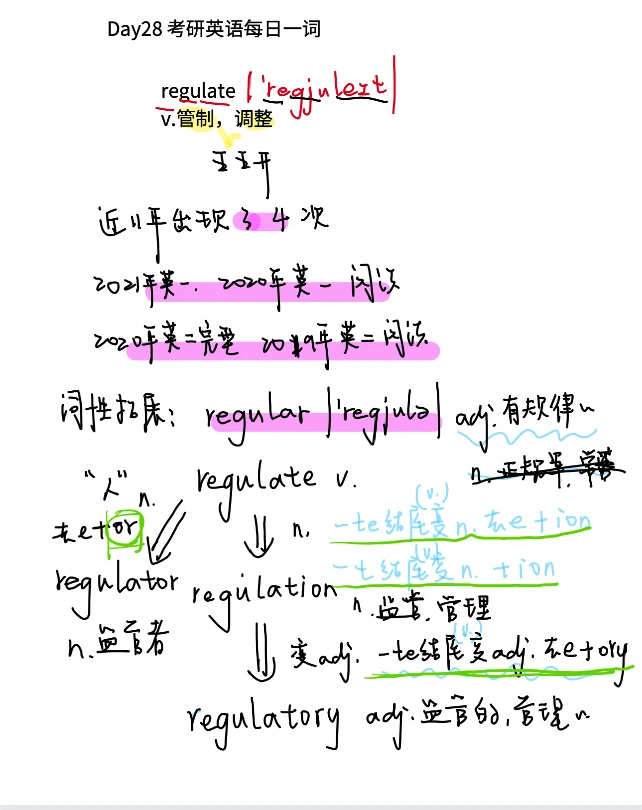 Day28 考研英语每日一词
regulate |'regjuleɪt|
v.管制，调整
近11年出现 3 4 次
2021年英一. 2020年英一 阅读
2020年英二完型 2019年英二阅读
词性拓展: regular |'regjulə| adj.有规律的
n.正规军,常客
"人" n. regulate v.
去e+or
n. -te结尾(v.)变n.去e+ion
-t结尾(v.)变n. +ion
regulator regulation
n.监管,管理
n.监管者
变adj. -te结尾(v.)变adj.去e+ory
regulatory adj.监管的,管理的